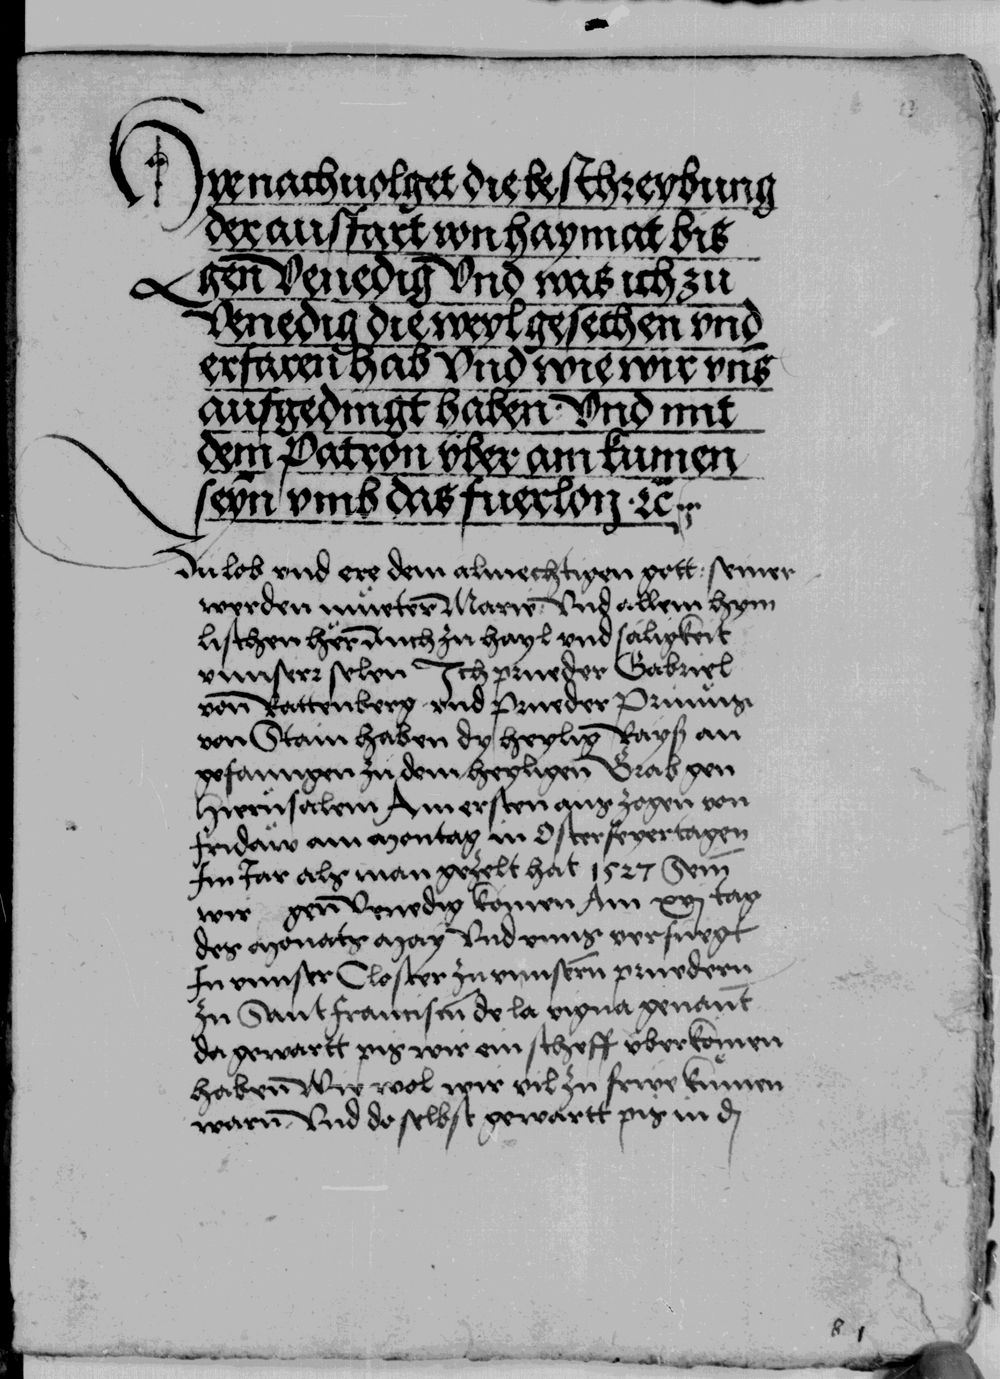 Hye nach uolget die beschreybung
der ausfart von haymat bis
gen̄ Venedig Vnd was ich zu
Venedig die weyl gesechen vnd
erfaren hab Vnd wie wir vn̄s
aufgedingt haben · Vnd mit
dem Patron vber ain kumen
seyn vmb das fuerlon ·ꝛc̄
Zu lob vnd ere dem almechtigen gott : seiner
werden mueter Marie Vnd allem hym
lischen her̄ Auch zu hayl vnd saligkeit
vnnserr selen Ich prueder Gabriel
von̄ Rattenberg vnd Prueder Primus
von Stain haben dy heylig Rayß an
gefanngen zu dem heyligen Grab gen
Hierusalem Am ersten aus zogen von
Fridaw am Montag in Osterfeyertagen
Im Jar als man gezelt hat 1527 Sein
wir gen̄ Venedig komen Am xvj tag
des Monats May Vnd vnns verfuegt
In vnnser Closter zu vnnsern pruedern
zu Sant Francisci de la vigna genant
da gewartt pis wir ein scheff vberkomen
haben̄ Wie wol wir vil zu frwe kumen
warn̄ Vnd doselbst gewartt pis in d